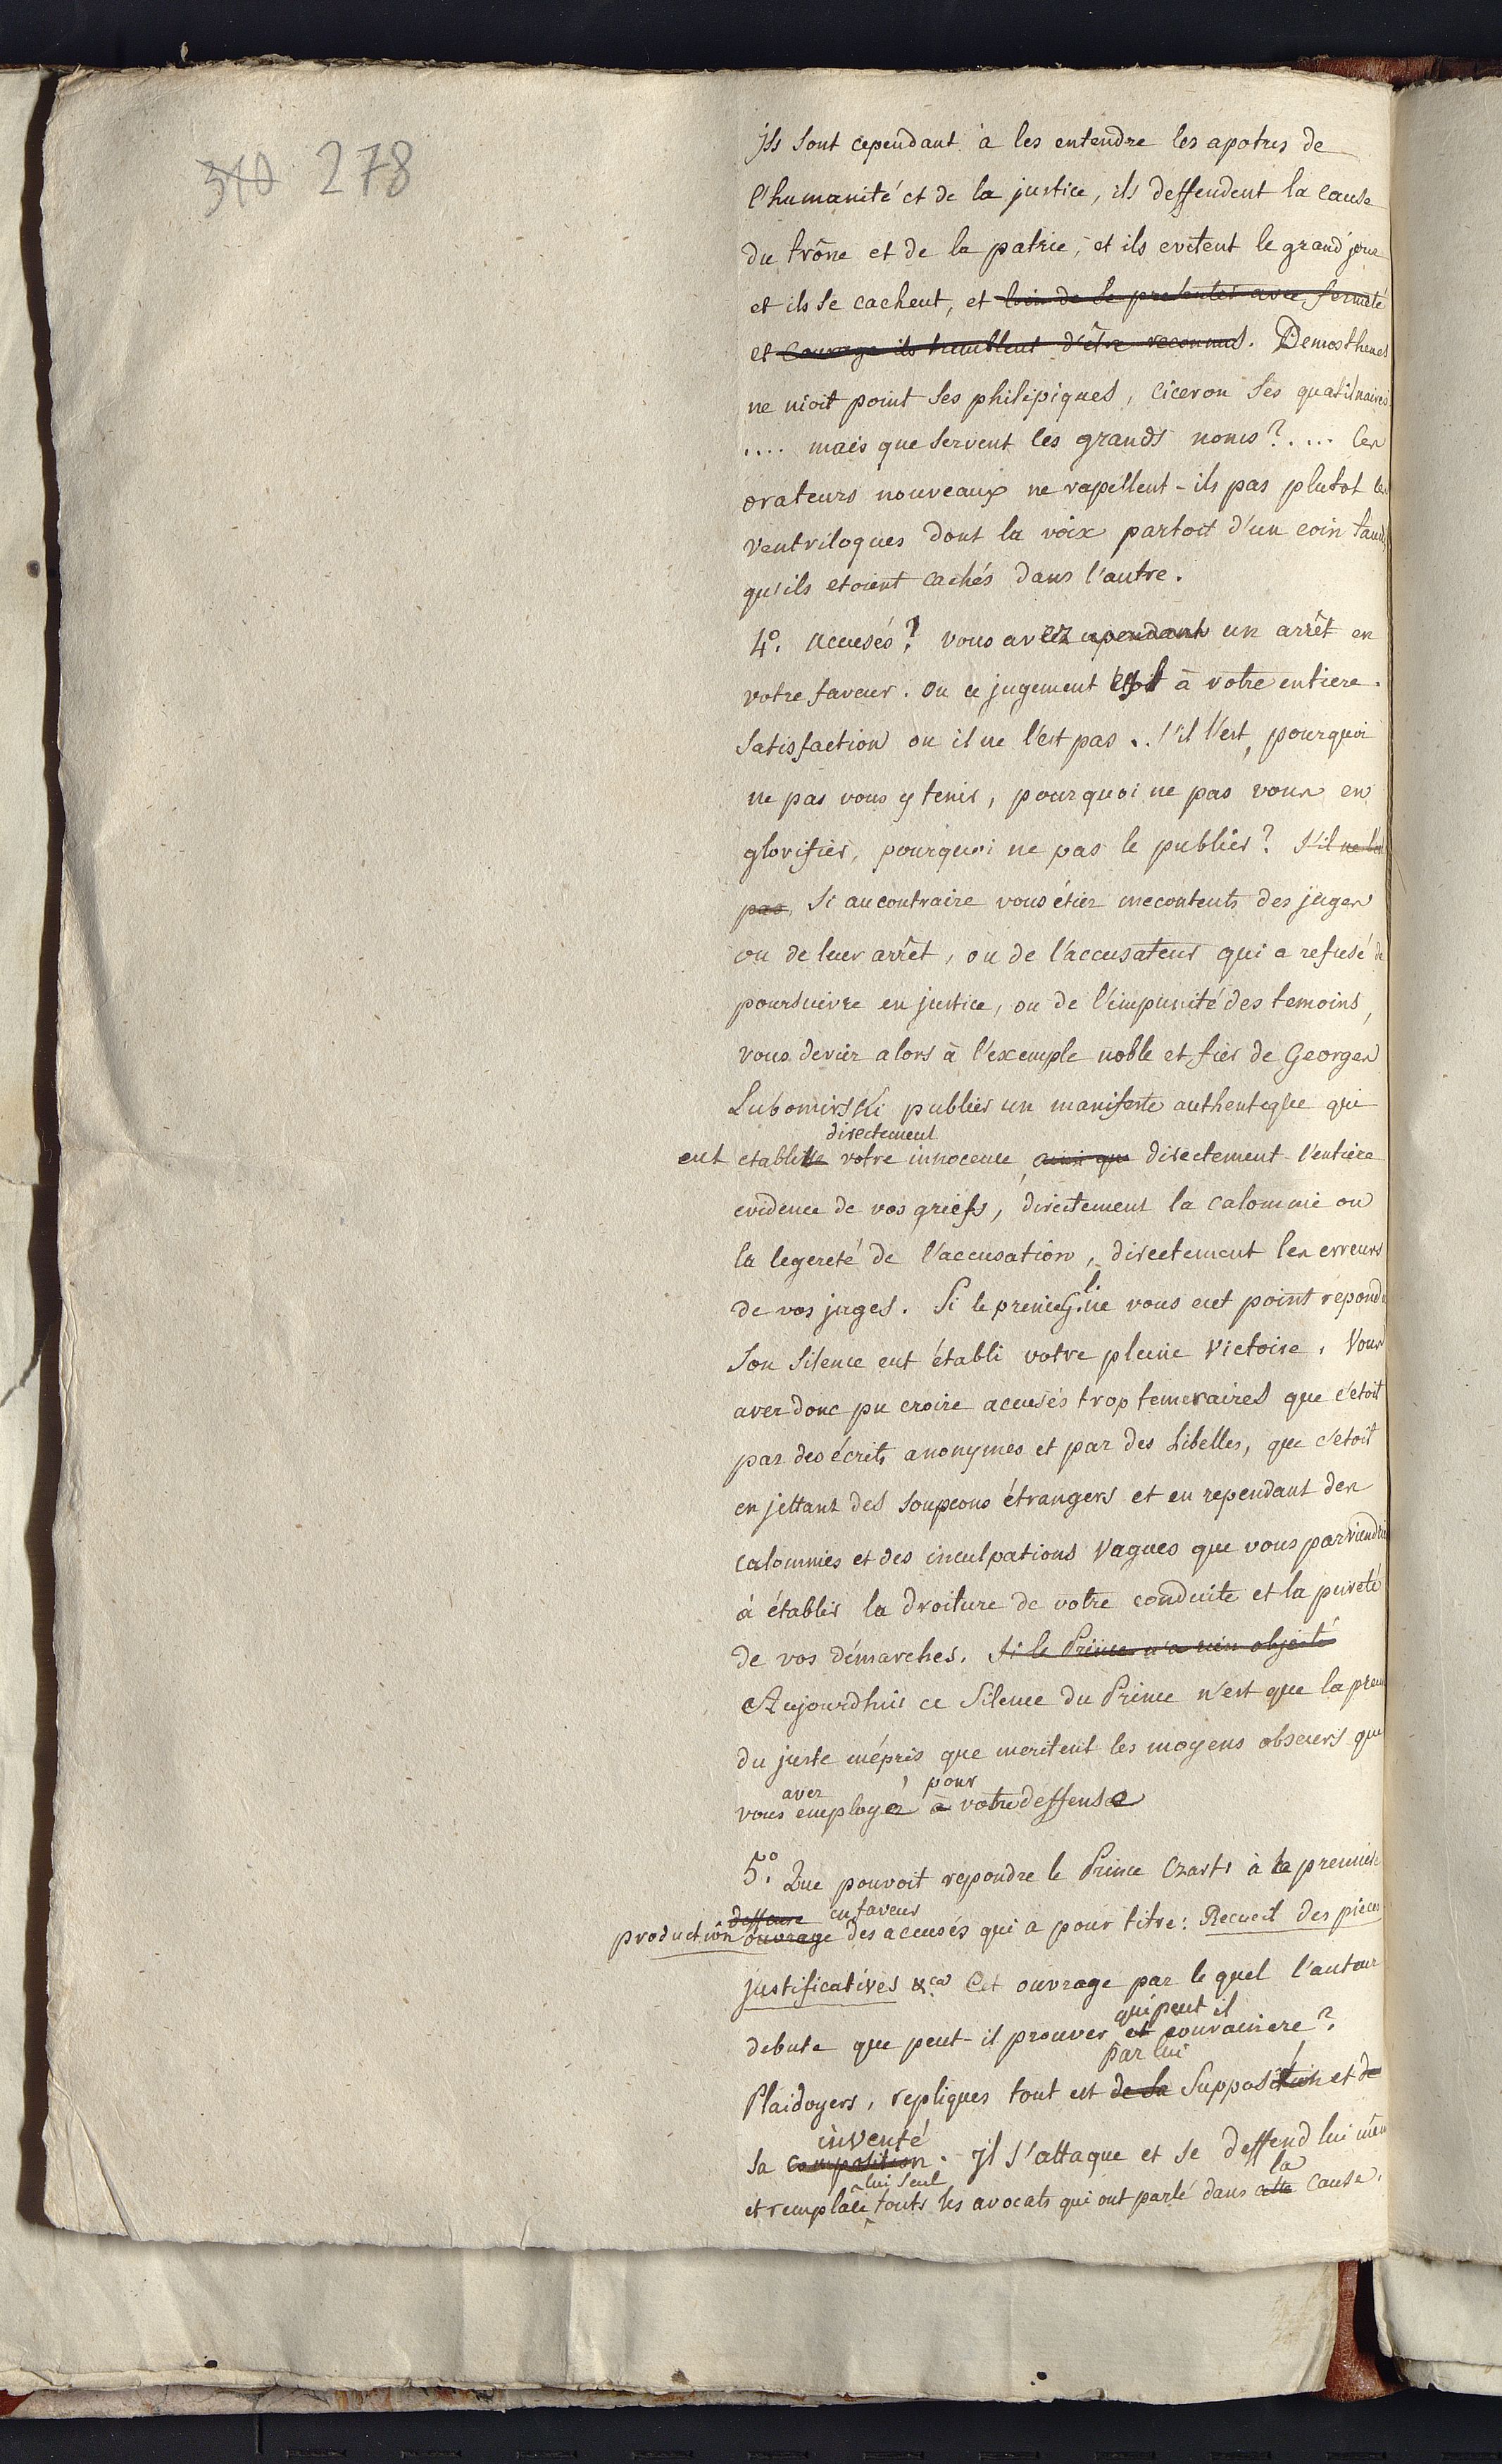 310 278
Ils sont cependant à les entendre les apotres de
l'humanité et de la justice, ils deffendent la cause
du trône et de la patrie, et ils evitent le grand jour
et ils se cachent, et loin de se presenter avec fermeté
et courage ils tremblent d'être reconnus. Demosthenes
ne nioit point ses philipiques, ciceron ses quatilinaires
.... mais que servent les grands noms?.... les
orateurs nouveaux ne rapellent-ils pas plutot les
ventriloques dont la voix partoit d'un coin tandis
qu'ils etoient cachés dans l'autre.
4.° accusés? vous avez cependant un arrêt en
votre faveur. ou ce jugement est à votre entiere
satisfaction ou il ne l'est pas.. s'il l'est, pourquoi
ne pas vous y tenir, pourquoi ne pas vous en
glorifier, pourquoi ne pas le publier? S'il ne l'est
pas, si au contraire vous étiez mecontents des juges
ou de leur arrêt, ou de l'accusateur qui a refusé de
poursuivre en justice, ou de l'impunité des temoins,
vous deviez alors à l'exemple noble et fier de Georges
Lubomirski publier un manifeste authentique qui
directement
eut etabli votre innocence, ainsi que directement l'entiere
evidence de vos griefs, directement la calomnie ou
la legereté de l'accusation, directement les erreurs
de vos juges. Si le prince G.l. ne vous eut point repondu
son silence eut établi votre pleine victoire. Vous
avez donc pu croire accusés trop temeraires que c'étoit
par des écrits anonymes et par des Libelles, que c'etoit
en jettant des soupçons étrangers et en rependant des
calomnies et des inculpations vagues que vous parviendriez
à établir la droiture de votre conduite et la pureté
de vos démarches. Si le Prince n'a rien objecté
Aujourdhui ce silence du Prince n'est que la preuve
du juste mépris que meritent les moyens obscurs que
avez pour
vous employé à votre deffense
5.° Que pouvoit repondre le Prince Czart: à la premiere
deffense en faveur
production ouvrage des accusés qui a pour titre: Recueil des pieces
justificatives &ca Cet ouvrage par le quel l'auteur
qui peut il
debute que peut-il prouver et convaincre?
par lui
Plaidoyers, repliques tout est de sa supposition et de
inventé
sa composition. Il s'attaque et se deffend lui même
lui seul la
et remplace touts les avocats qui ont parlé dans cette cause.